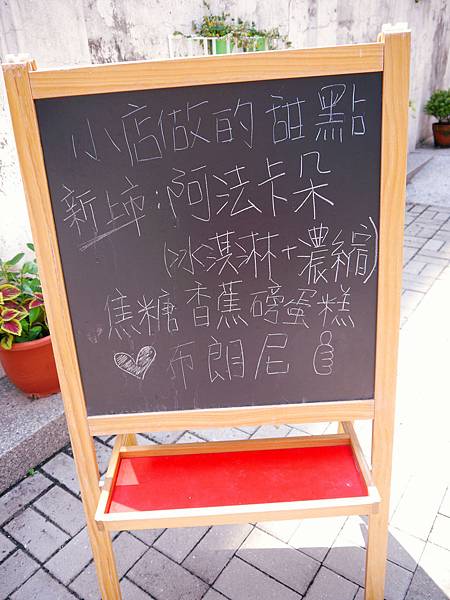 小店做的甜點
新上市:阿法卡朵
(冰淇淋+濃縮)
焦糖香蕉磅蛋糕
布朗尼